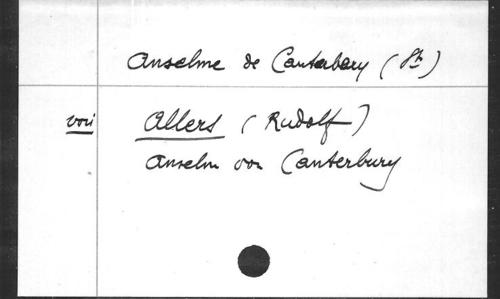 Anselme de Canterbury (St)
voir Allers (Rudolf)
Anselm von Canterbury